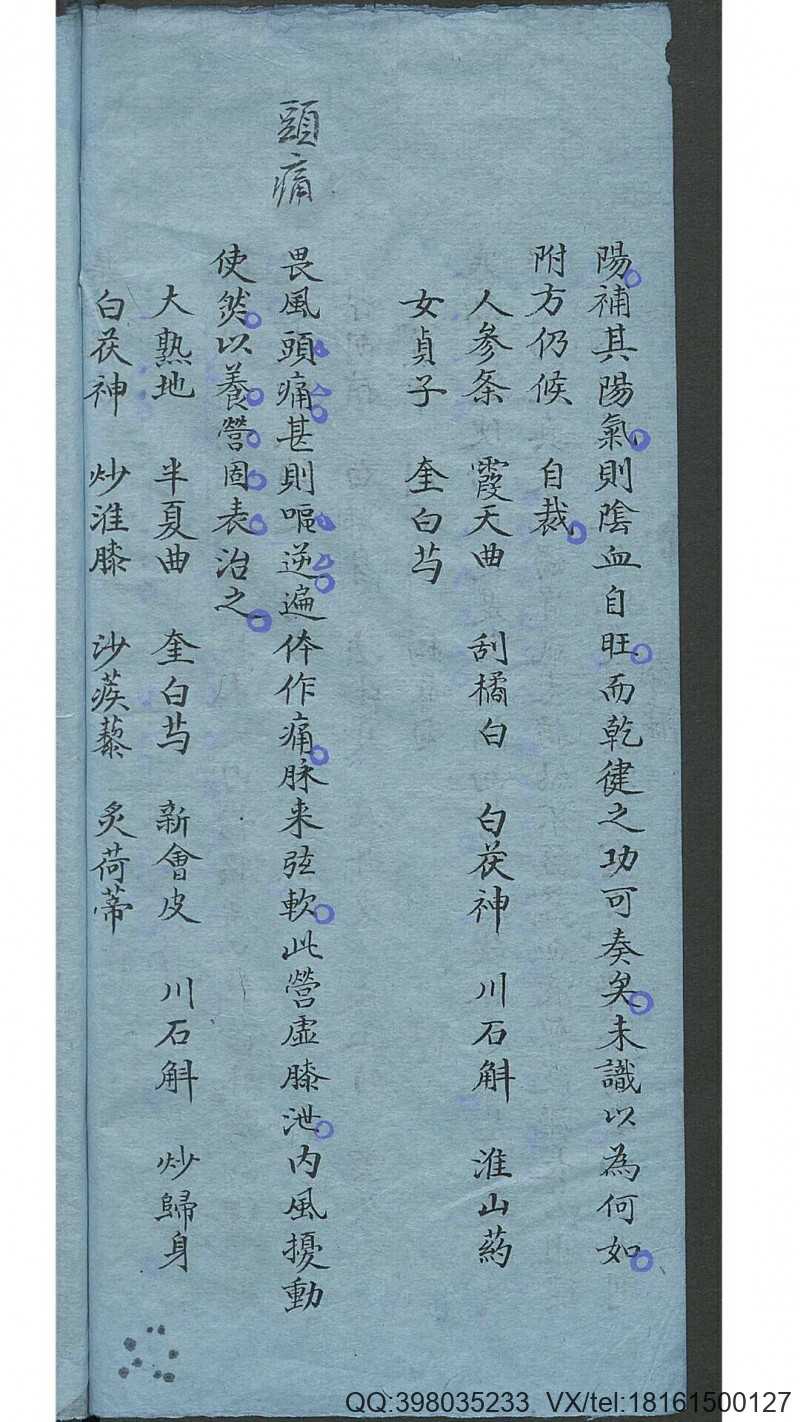 陽補其陽氣則陰血自旺而乾健之功可奏矣未識以為何如
附方仍候　自裁
人參条　霞天曲　刮橘白　白茯神　川石斛　淮山葯
女貞子　奎白芍
頭痛
畏風頭痛甚則嘔逆遍体作痛脉来弦軟此營虛膝泄内風擾動
使然以養營固表治之
大熟地　半夏曲　奎白芍　新會皮　川石斛　炒歸身
白茯神　炒淮膝　沙蒺藜　炙荷蒂
QQ:398035233 VX/tel:18161500127